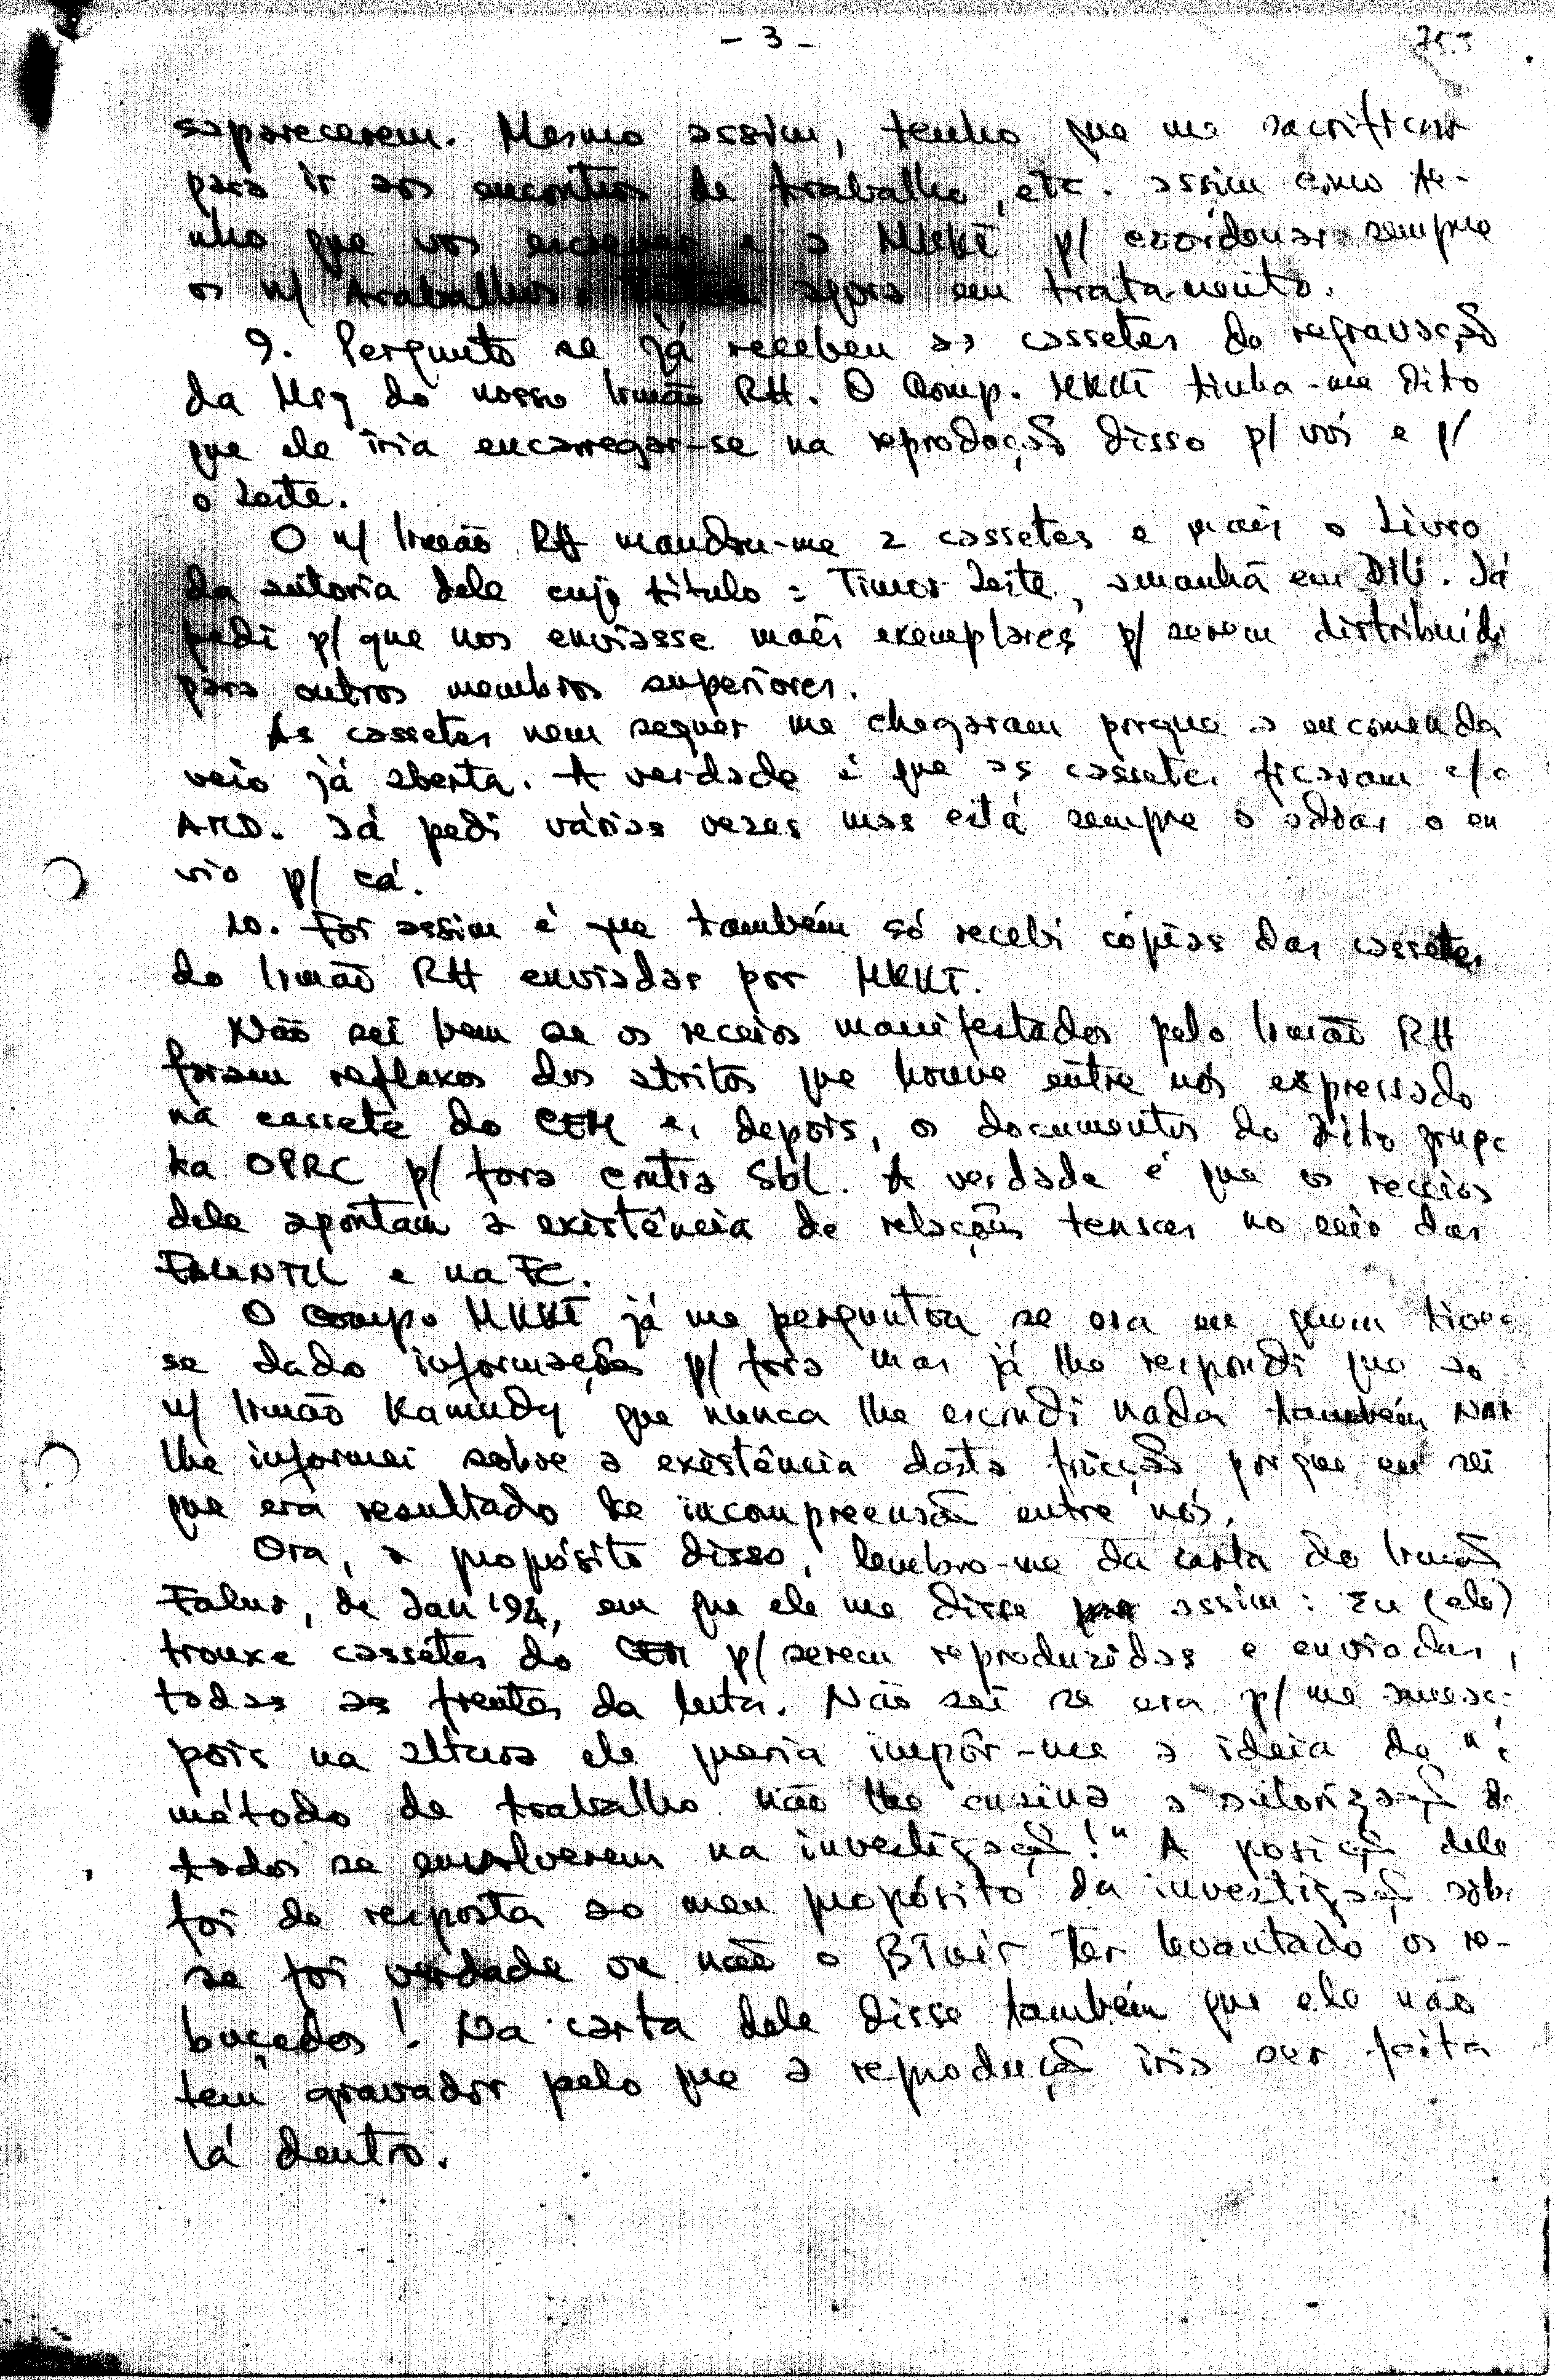 - 3 -
saparecerem. Mesmo assim, tenho que me sacrificar
para ir aos encontros de trabalho, etc. assim como te-
nho que vos escrever e a MKKT p/ coordenar sempre
os n/ trabalhos. agora em tratamento.
9. Pergunto se já recebeu as cassetes da regravação
da Msg do nosso Irmão RH. O Comp. MKKT tinha-me dito
que ele iria encarregar-se na reprodução disso p/ vós e p/
o Leste.
O n/ Irmão RH mandou-me 2 cassetes e mais o Livro
da autoria dele cujo título: Timor Leste, amanhã em Dili. Já
pedi p/ que nos enviasse mais exemplares p/ serem distribuíds
para outros membros superiores.
As cassetes nem sequer me chegaram porque a encomenda
veio já aberta. A verdade é que as cassetes ficaram c/o
AMD. Já pedi várias vezes mas está sempre a adiar o en
vio p/ cá.
10. Foi assim é que também só recebi cópias das cassetes
do Irmão RH enviadas por MKKT.
Não sei bem se os receios manifestados pelo Irmão RH
foram reflexos dos atritos que houve entre nós expressado
na cassete do CEM e, depois, os documentos do dito grupo
ka OPRC p/ fora contra Sbl. A verdade é que os receios
dele apontam a existência de relações tensas no seio das
FALINTIL e na FC.
O Compo MKKT já me perguntou se era eu quem tives
se dado informações p/ fora mas já lhe respondi que ao
n/ Irmão Kamudy que nunca lhe escondi nada também não
lhe informei sobre a existência desta fricção porque eu sei
que era resultado de incompreensão entre nós.
Ora, a propósito disso, lembro-me da carta do Irmão
Falur, de Jan '94, em que ele me disse assim: Eu (ele)
trouxe cassetes do CEM p/ serem reproduzidas e enviadas,
todas as frentes da luta. Não sei se era p/ me ameaç
pois na altura ele queria impôr-me a ideia do "é
método de trabalho não lhe ensina a autorização de
todos se envolverem na investigação!" A posição dele
foi de resposta ao meu propósito da investigação sob
se foi verdade ou não o Bimir ter levantado os re-
buçados! Na carta dele disse também que ele não
tem gravador pelo que a reprodução iria ser feita
lá dentro.